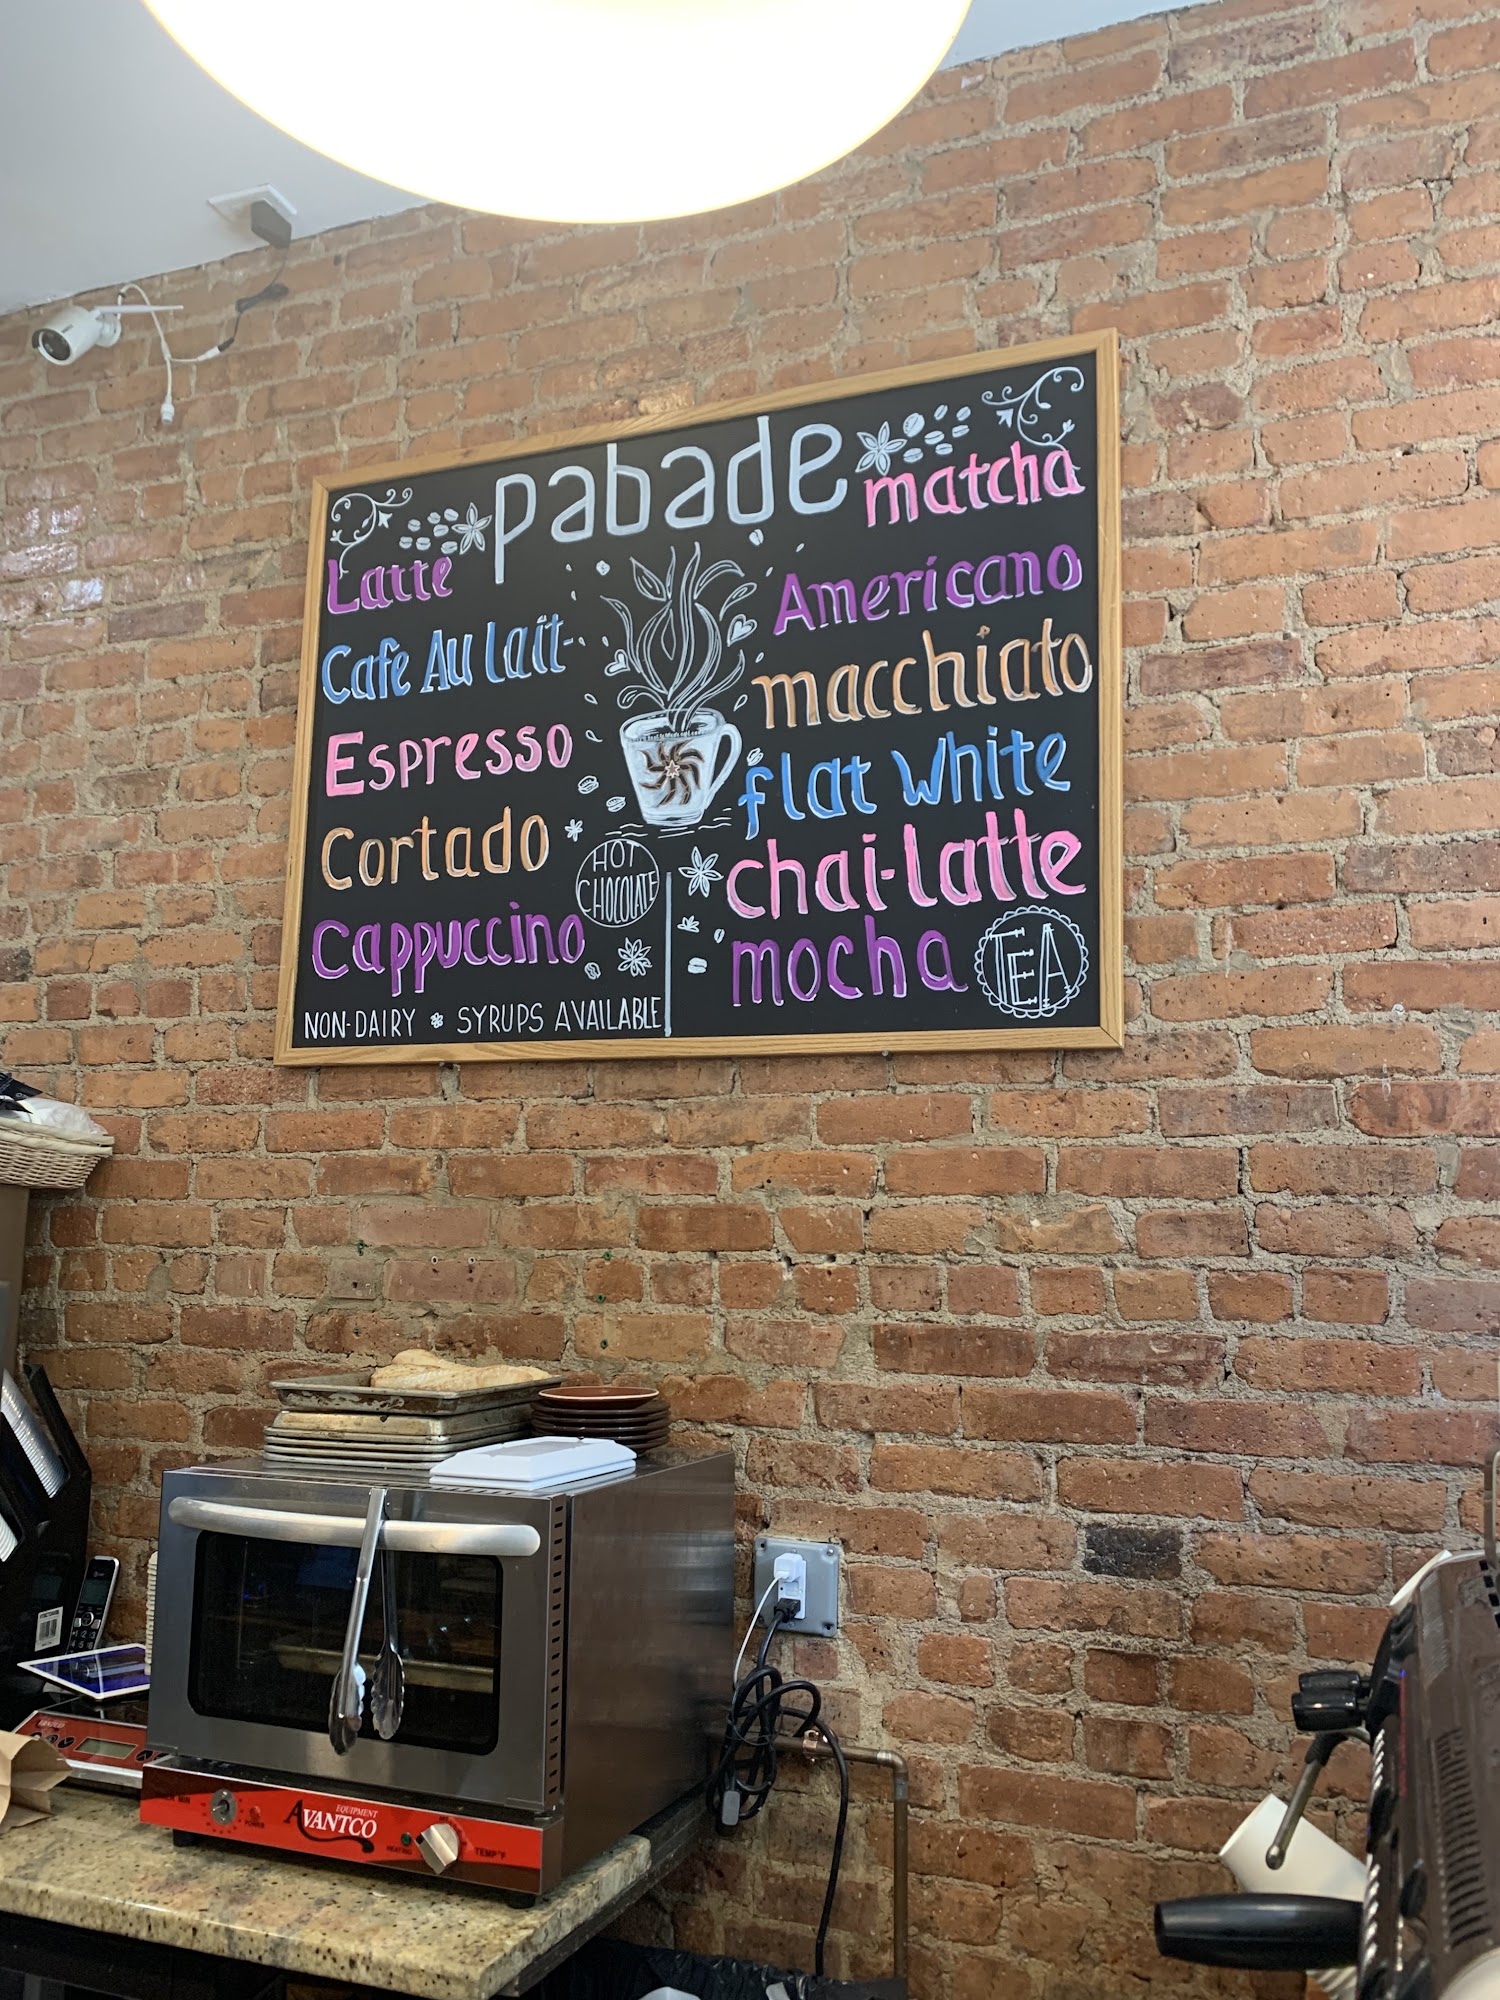 pabade
Latte
Cafe Au lait
Espresso
Cortado
Cappuccino
NON-DAIRY * SYRUPS AVAILABLE
HOT
CHOCOLATE
matcha
Americano
macchiato
flat white
chai-latte
mocha
TEA
AVANTCO
EQUIPMENT
POWER
HEATING
TEMP °F